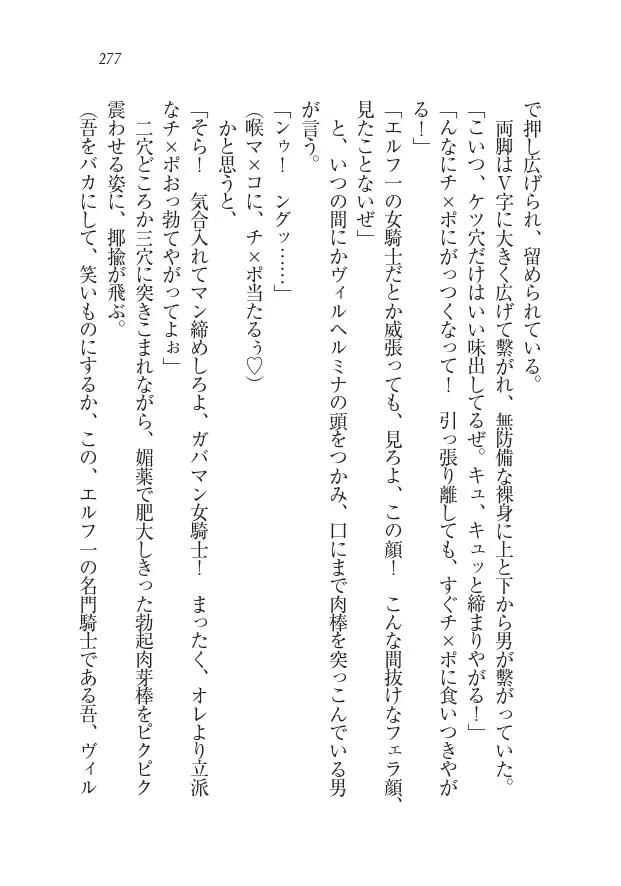 277
で押し広げられ、留められている。
　両脚はＶ字に大きく広げて繋がれ、無防備な裸身に上と下から男が繋がっていた。
「こいつ、ケツ穴だけはいい味出してるぜ。キュ、キュッと締まりやがる！」
「んなにチ×ポにがっつくなって！　引っ張り離しても、すぐチ×ポに食いつきやが
る！」
「エルフ一の女騎士だとか威張っても、見ろよ、この顔！　こんな間抜けなフェラ顔、
見たことないぜ」
　と、いつの間にかヴィルヘルミナの頭をつかみ、口にまで肉棒を突っこんでいる男
が言う。
「ンゥ！　ングッ……」
（喉マ×コに、チ×ポ当たるぅ♡）
　かと思うと、
「そら！　気合入れてマン締めしろよ、ガバマン女騎士！　まったく、オレより立派
なチ×ポおっ勃てやがってよぉ」
　二穴どころか三穴に突きこまれながら、媚薬で肥大しきった勃起肉芽棒をピクピク
震わせる姿に、揶揄が飛ぶ。
（吾をバカにして、笑いものにするか、この、エルフ一の名門騎士である吾、ヴィル